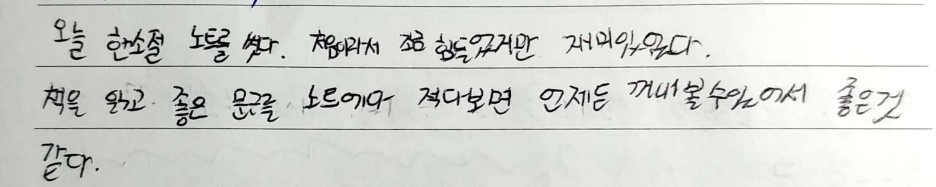 오늘 한소절 노트를 썼다. 처음이라서 조금 힘들었지만 재미있었다.
책을 읽고 좋은 문구를 노트에다 적다보면 언제든 꺼내볼수있어서 좋은것
같다.